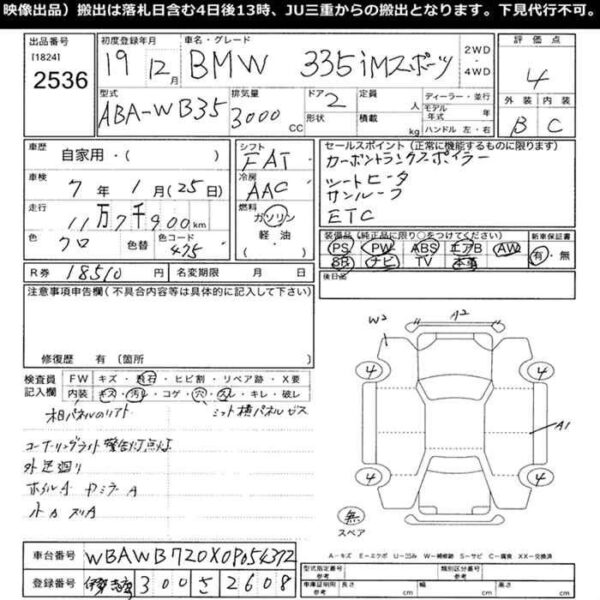 映像出品）搬出は落札日含む4日後13時、JU三重からの搬出となります。下見代行不可。
出品番号 初度登録年月 車名・グレード 2WD ・ 4WD 評価点
[1824] 2536 19年 12月 BMW 335iMスポーツ 4
型式 排気量 ドア 定員 人 ディーラー・並行 外装 内装
ABA-WB35 3000 CC 2 形状 積載 kg モデル年式 年 ハンドル 左・右 B C
車歴 自家用・( ) シフト FAT セールスポイント (正常に機能するものに限ります)
カーボントランクスポイラー
車検 7年 1月(25日) 冷房 AAC シートヒータ
サンルーフ
走行 11万7千900km 燃料 ガソリン ETC
軽・油 装備品(純正品に限り○をつけてください) 新車保証書
色 クロ 色替 色コード 475 ( ) PS PW ABS エアB AW 有・無
SR ナビ TV 本革
R券 18510円 名変期限 月 日 後日品
注意事項申告欄(不具合内容等は具体的に記入して下さい)
修復歴 有(箇所 )
W2 A2
4 4
A1
4 4
無
スペア
検査員記入欄 FW キズ・飛石・ヒビ割・リペア跡・X要
内装 キズ・汚レ・コゲ・穴・スレ・キレ・破レ
コーナーリングライト 警告灯点灯
A-キズ E-エクボ U-凹み W-補修跡 S-サビ C-腐食 XX-交換済
車台番号 WBAWB720X0P054372 型式指定番号 参考 類別区分番号 参考
登録番号 300 さ 2608 車庫証明用 参考 長さ cm 幅 cm 高さ cm